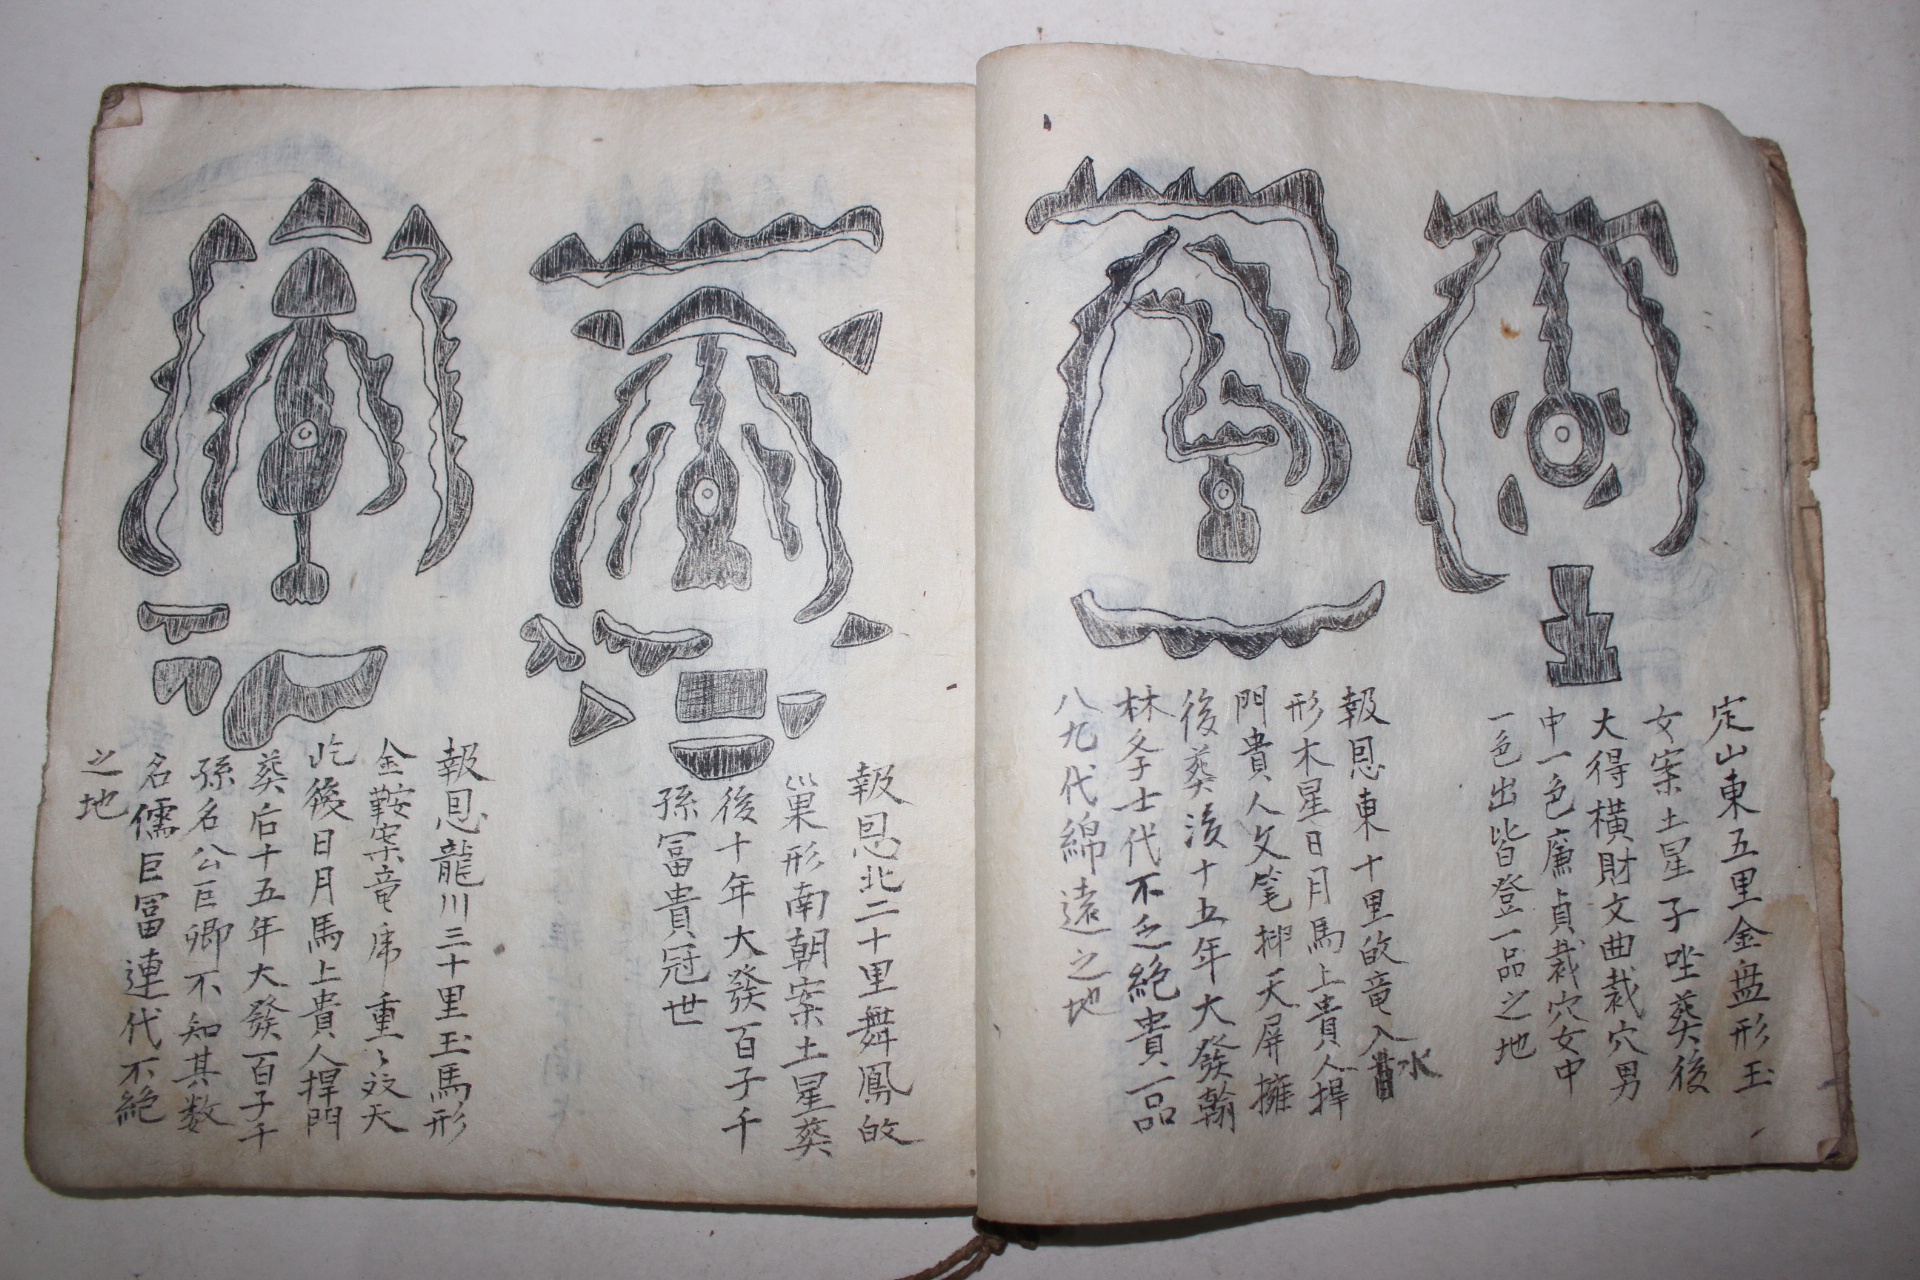 定山東五里金盤形玉
女案土星子坐葬後
大得橫財文曲裁穴男
中一色廉貞裁穴女中
一色出皆登一品之地
報恩東十里的竜入水
形木星日月馬上貴人捍
門貴人文笔排天屏擁
後葬後十五年大發翰
林多士代不乏絕貴一品
八九代綿遠之地
報恩北二十里舞鳳的
巢形南朝案土星葬
後十年大發百子千
孫富貴冠世
報恩龍川三十里玉馬形
金鞍案竜乕重〻
後日月馬上貴人捍門
葬后十五年大發百子千
孫名公巨卿不知其数
名儒巨富連代不絕
之地